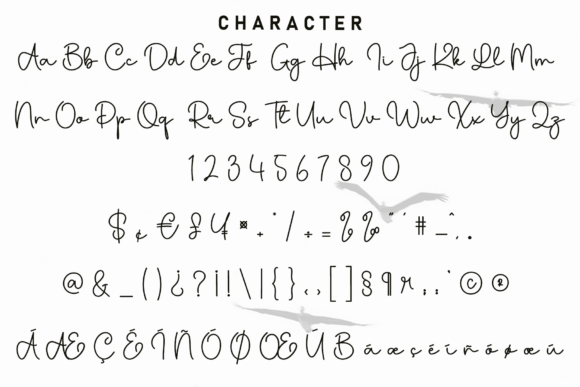 CHARACTER
Aa Bb Cc Dd Ee Ff Gg Hh Ii Jj Kk Ll Mm
Nn Oo Pp Qq Rr Ss Tt Uu Vv Ww Xx Yy Zz
1234567890
$ ¢ € £ ¥ ¤ + ° / ÷ = % ‰ " ' # – ^ , .
@ & _ ( ) ¿ ? ¡ ! \ | { } ‹ › [ ] § ¶ : ; © ®
Á Æ Ç É Í Ñ Ó Ø Œ Ú ß á æ ç é í ñ ó ø œ ú